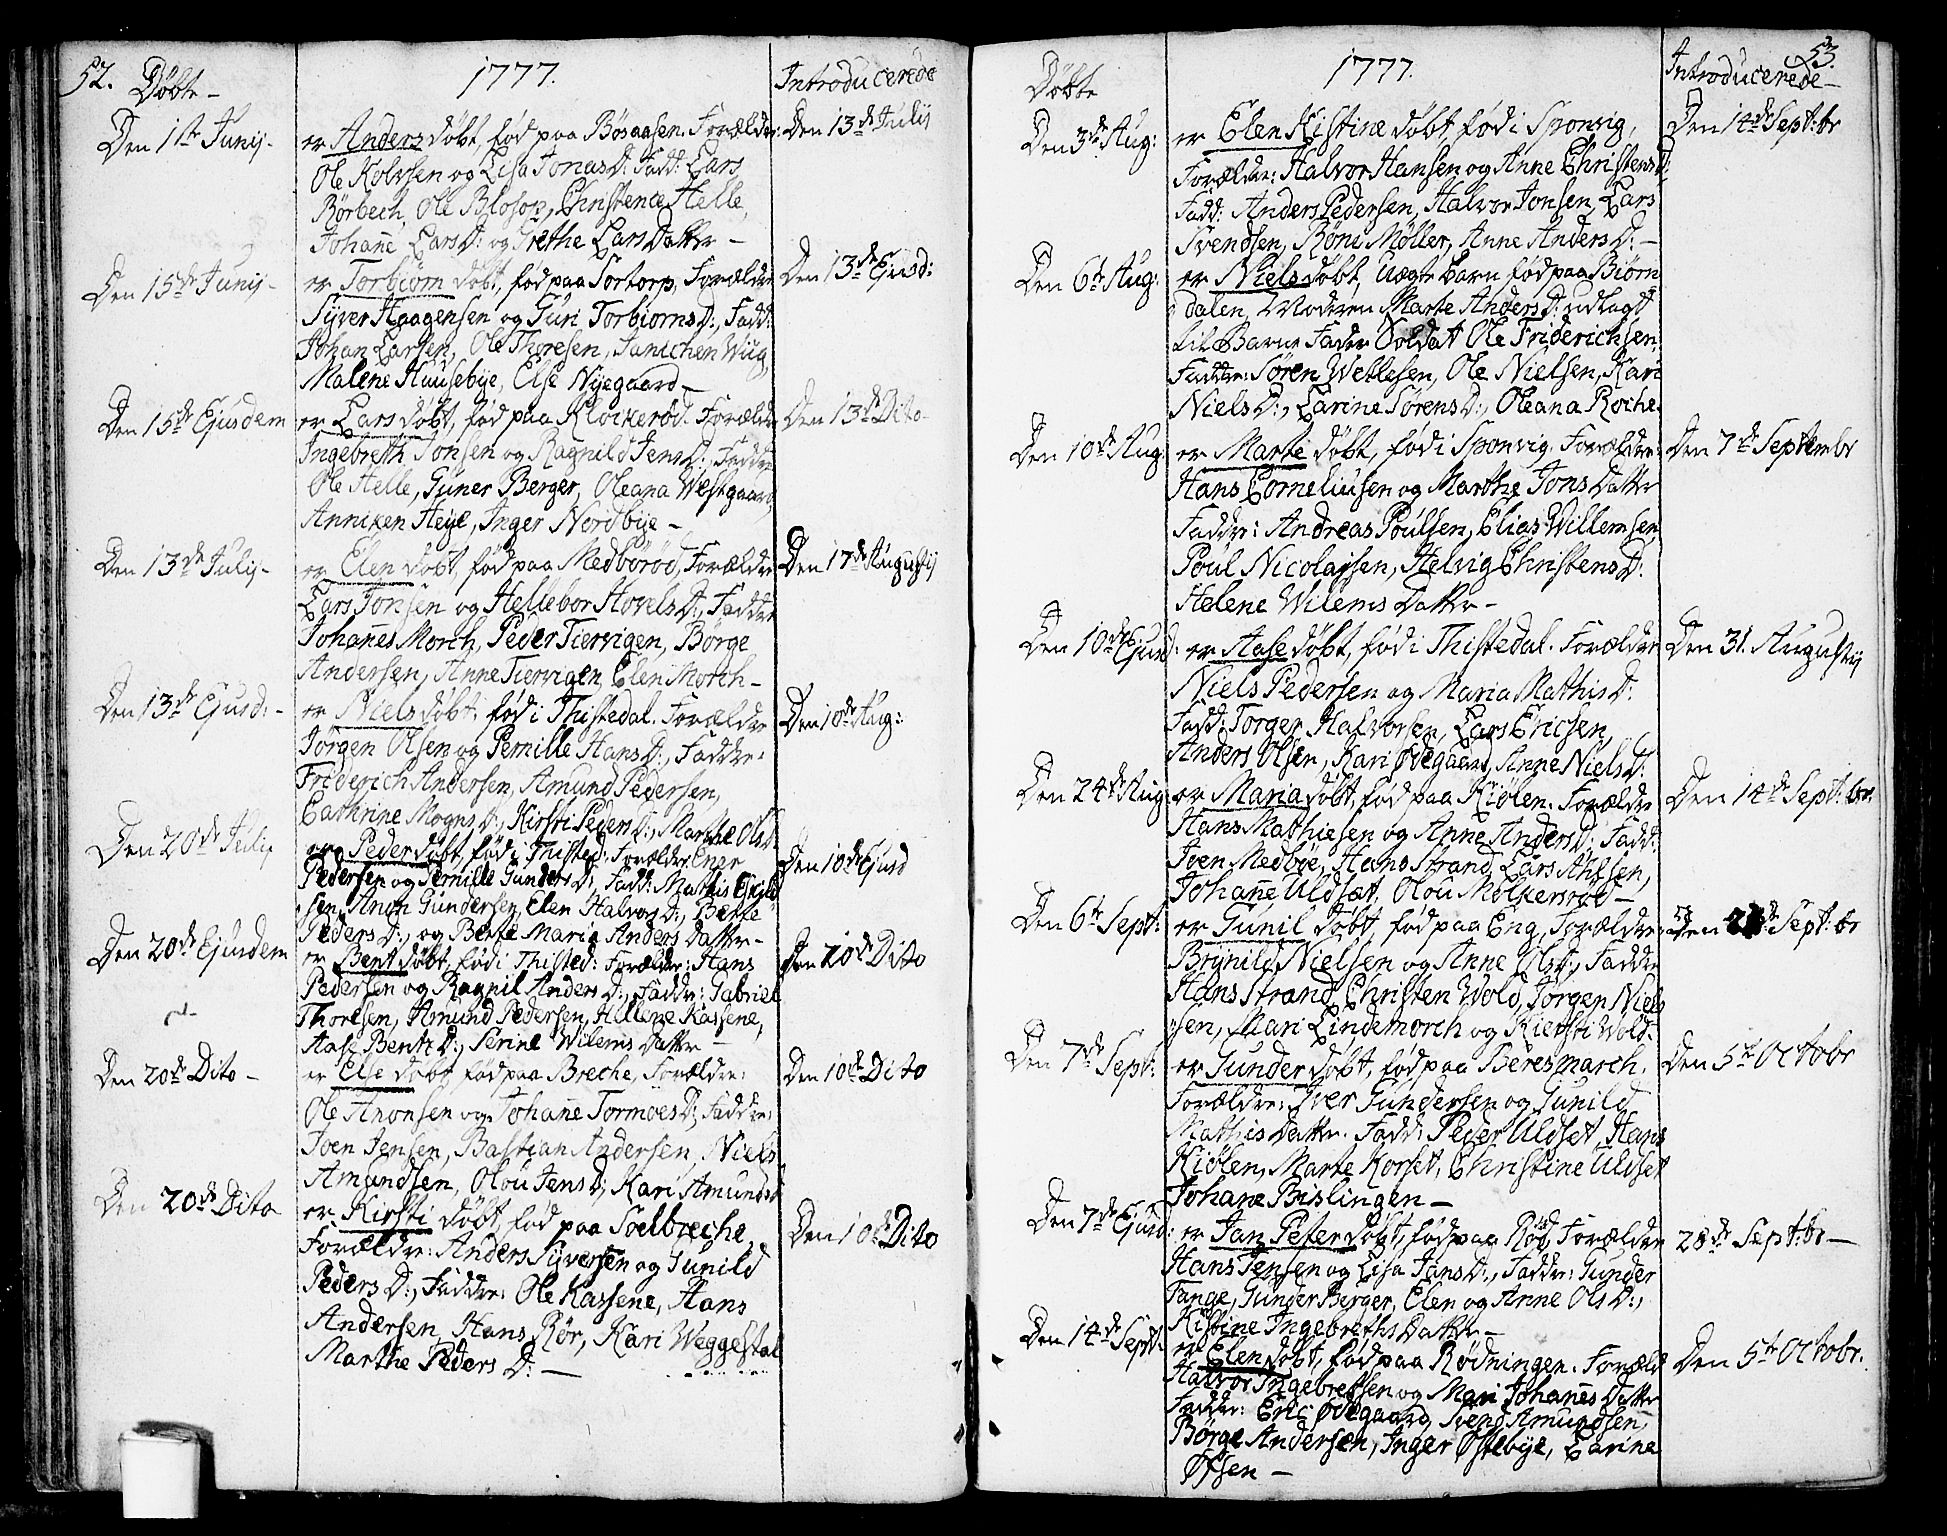 52. Døbte - 1777. Introducerede
Den 1ste Junij - er Anders døbt, fød paa Bøsaasen. Forældre: Den 13de Julij
Ole Kolvsen og Lisa JonasD: Fadd: Lars
Rørbech, Ole Blosop, Christence Helle,
Johañe LarsD: og Grethe Lars Datter -
Den 15de Junij - er Torbiorn døbt, fød paa Tortorp, Forældre Den 13de Ejusd:
Syver Haagensen og Guri TorbiornsD:, Fadd:
Johan Larsen, Ole Thoresen, Janichen Wiig,
Malene Huusebye, Else Nyegaard -
Den 15de Ejusdem er Lars døbt, fød paa Klockerød. Forældre Den 13de Dito -
Ingebreth Jonsen og Ragnild JensD:, Faddre
Ole Helle, Guner Berger, Oleana Westgaard,
Anniken Heye, Inger Nordbye -
Den 13de Julij - er Elen døbt, fød paa Medbørød, Forældre Den 17de Augustij
Lars Jonsen og Hellebor HovelsD:, Faddre
Johañes Morch, Peder Tiervigen, Børge
Andersen, Anne Tiervigen, Elen Morch -
Den 13de Ejusd: - er Niels døbt, fød i Thistedal. Forældre Den 10de Aug:
Jørgen Olsen og Pernille HansD:, Faddre:
Friderich Andersen, Amund Pedersen,
Cathrine MognsD:, Kirsti PedersD:, Marthe OlsD:
Den 20de Julij er Peder døbt, fød i Thisted: Forældre Ener Den 10de Ejusd
Pedersen og Pernille GundersD:, Fadd: Mathis Eskild-
sen, Anon Gundersen, Elen HalvorsD:, Berte
PedersD:, og Berte Maria Anders Datter -
Den 20de Ejusdem er Bent døbt, fød i Thisted: Forældre: Hans Den 10de Dito
Pedersen og Ragnil AndersD:, Faddr: Gabriel
Thoresen, Amund Pedersen, Hellene Kassene,
Aase BentzD:, Serine Wilems Datter -
Den 20de Dito - er Else døbt, fød paa Breche, Forældre: Den 10de Dito
Ole Anonsen og Johañe TormoesD: Faddre:
Joen Jensen, Bastian Andersen, Niels
Amundsen, Olou JensD:, Kari AmundsD
Den 20de Dito er Kirsti døbt, fød paa Soelbreche, Den 10de Dito
Forældre: Anders Syversen og Gunild
PedersD:, Faddre: Ole Kassene, Hans
Andersen, Hans Rør, Kari Weggestal
Marthe PedersD: -
Døbte 1777. Introducerede - 53.
Den 3de Aug: er Elen Kistine døbt, fød i Sponvig, Den 14de Sept:br
Forældre: Halvor Hansen og Anne ChristensD:
Fadd: Anders Pedersen, Halvor Jonsen, Lars
Svendsen, Røni Møller, Anne AndersD: -
Den 6te Aug: er Niels døbt, Uægte barn fød paa Biørn
dalen, Moderen Marte AndersD: udlagt
til Barne Fader Soldat Ole Friderichsen,
Faddre: Søren Wetlesen, Ole Nielsen, Kari
NielsD:, Carine SørensD:, Oleana Roche.
Den 10de Aug er Marte døbt, fød i Sponvig. Forældre: Den 7de Septembr
Hans Corneliusen og Marthe Jons Datter
Faddre: Andreas Poulsen, Elias Willemsen
Poul Nicolajsen, Helvig ChristensD:
Helene Wilems Datter -
Den 10de Ejusd: er Aase døbt, fød i Thistedal. Forældre Den 31. Augustij
Niels Pedersen og Maria MathisD:
Fadd: Torger Halvorsen, Lars Ericsen,
Anders Olsen, Kari Ødegaard, Anne NielsD:
Den 24de Aug er Maria døbt, fød paa Kiølen. Forældre Den 14de Sept:br.
Hans Mathiesen og Anne AndersD: Fadd:
Joen Medbøe, Hans Strand, Lars Ahlsen,
Johañe Uldsæt, Olou Molkersrød -
Den 6te Sept: er Gunil døbt, fød paa Eng, Forældre: Den Sept:br
Brynild Nielsen og Anne OlsD:, Faddre
Hans Strand, Christen Wold, Jørgen Niel-
sen, Mari Lindemorch og Kiersti Wold.
Den 7de Sept: er Gunder døbt, fød paa Beresmarch. Den 5te Octobr
Forældre: Iver Gundersen og Gunild
Mathis Datter. Fadd: Peder Uldset, Hans
Kiølen, Marte Korset, Christine Uldset
Johane Bislingen -
Den 7de Ejusd: er Jan Peter døbt, fød paa Rød, Forældre 28de Sept:br -
Hans Jensen og Lisa JansD:, Faddre: Gunder
Tange, Gunder Berger, Elen og Anne OlsD:,
Kistine Ingebreths Datter -
Den 14de Sept: er Elen døbt, fød paa Rødningen. Foræld Den 5te Octobr.
Halvor Ingebretsen og Mari Johañes Datter
Faddre: Eric Ødegaard, Svend Amundsen,
Børge Andersen, Inger Østebye, Carine
Ofsen -